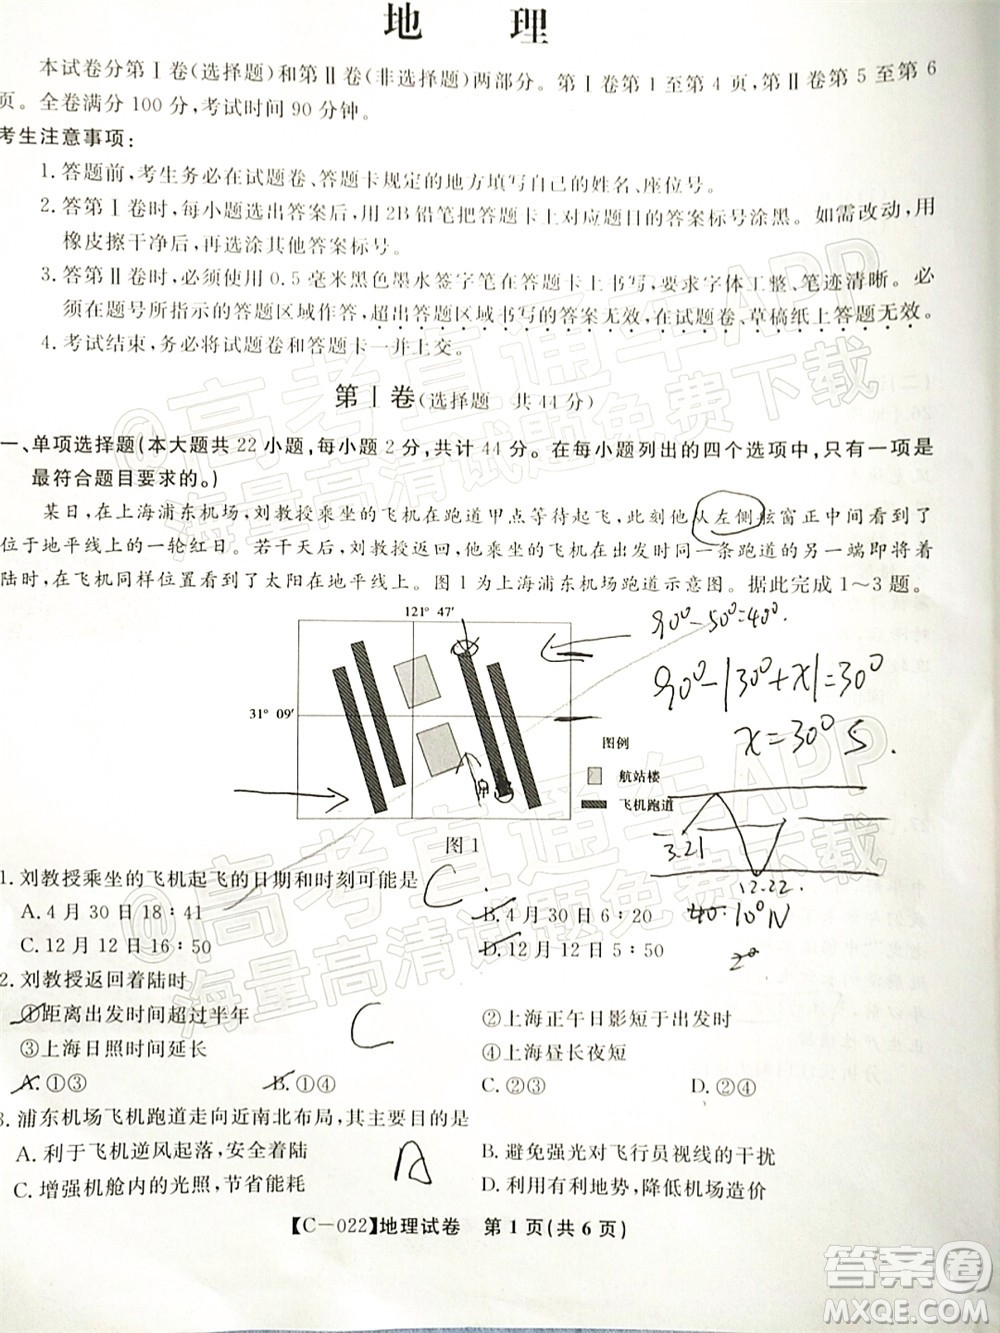 地 理
本试卷分第Ⅰ卷(选择题)和第Ⅱ卷(非选择题)两部分。第Ⅰ卷第 1 至第 4 页,第Ⅱ卷第 5 至第 6
页。全卷满分 100 分,考试时间 90 分钟。
考生注意事项:
1. 答题前,考生务必在试题卷、答题卡规定的地方填写自己的姓名、座位号。
2. 答第Ⅰ卷时,每小题选出答案后,用 2B 铅笔把答题卡上对应题目的答案标号涂黑。如需改动,用
橡皮擦干净后,再选涂其他答案标号。
3. 答第Ⅱ卷时,必须使用 0.5 毫米黑色墨水签字笔在答题卡上书写,要求字体工整、笔迹清晰。必
须在题号所指示的答题区域作答,超出答题区域书写的答案无效,在试题卷、草稿纸上答题无效。
4. 考试结束,务必将试题卷和答题卡一并上交。
第Ⅰ卷(选择题 共 44 分)
一、单项选择题(本大题共 22 小题,每小题 2 分,共计 44 分。在每小题列出的四个选项中,只有一项是
最符合题目要求的。)
某日,在上海浦东机场,刘教授乘坐的飞机在跑道甲点等待起飞,此刻他从左侧舷窗正中间看到了
位于地平线上的一轮红日。若干天后,刘教授返回,他乘坐的飞机在出发时同一条跑道的另一端即将着
陆时,在飞机同样位置看到了太阳在地平线上。图 1 为上海浦东机场跑道示意图。据此完成 1～3 题。
121° 47′
31° 09′
甲
图例
航站楼
飞机跑道
图 1
90°-50°=40°
90°-|30°+x|=30°
x=30° S.
3.21
12.22
40° 10°N
1. 刘教授乘坐的飞机起飞的日期和时刻可能是
C
A. 4 月 30 日 18:41
B. 4 月 30 日 6:20
C. 12 月 12 日 16:50
D. 12 月 12 日 5:50
2. 刘教授返回着陆时
C
①距离出发时间超过半年
②上海正午日影短于出发时
③上海日照时间延长
④上海昼长夜短
A. ①③
B. ①④
C. ②③
D. ②④
3. 浦东机场飞机跑道走向近南北布局,其主要目的是
A
A. 利于飞机逆风起落,安全着陆
B. 避免强光对飞行员视线的干扰
C. 增强机舱内的光照,节省能耗
D. 利用有利地势,降低机场造价
【C-022】地理试卷 第 1 页(共 6 页)
@高考直通车APP
海量高清试题免费下载
@高考直通车APP
海量高清试题免费下载
答案卷
MXQE.COM